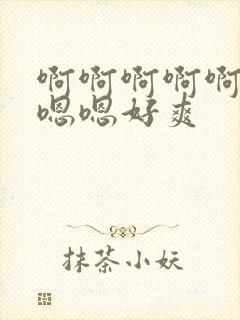 啊啊啊啊啊
嗯嗯好爽
抹茶小妖